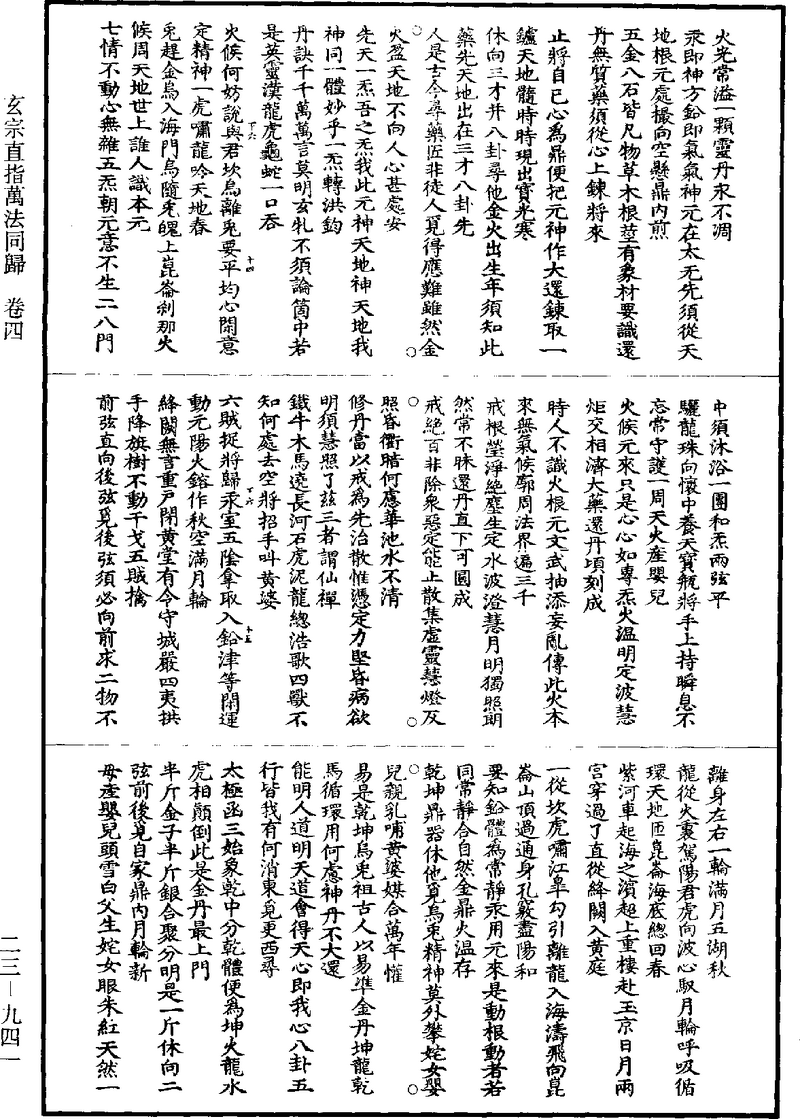 玄宗直指萬法同歸　卷四
二三—九四一
火光常溢一顆靈丹永不凋
汞即神方鉛即氣氣神元在太无先須從天
地根元處撮向空懸鼎内煎
五金八石皆凡物草木根莖有象材要識還
丹無質藥須從心上鍊將來
止將自己心為鼎便把元神作大還鍊取一
鑪天地髓時時現出寶光寒
休向三才并八卦尋他金火出生年須知此
藥先天地出在三才八卦先
人是古今尋藥匠非徒人覓得應難雖然金
火盈天地不向人心甚處安
先天一炁吾之炁我此元神天地神天地我
神同一體妙乎一炁轉洪鈞
丹訣千千萬萬言莫明玄牝不須論箇中若
是英靈漢龍虎龜蛇一口吞
火候何妨說與君坎烏離兔要平均心閑意
定精神一虎嘯龍吟天地春
兔趕金烏入海門烏隨兔魄上崑崙刹那火
候周天地世上誰人識本元
七情不動心無雜五炁朝元意不生二八門
中須沐浴一團和炁兩弦平
驪龍珠向懷中養天寶瓶將手上持瞬息不
忘常守護一周天火產嬰兒
火候元來只是心心如專炁火温明定波慧
炬交相濟大藥還丹頃刻成
時人不識火根元文武抽添妄亂傳此火本
來無氣候廓周法界遍三千
戒根瑩淨絶塵生定水波澄慧月明獨照朗
然常不昧還丹直下可圓成
戒絶百非除衆惡定能止散集虛靈慧燈反
照昏衢皓何慮華池水不清
修丹當以戒為先治散惟憑定力堅昏病欲
明須慧照了兹三者謂仙禪
鐵牛木馬遶長河石虎泥龍總浩歌四獸不
知何處去空將招手叫黄婆
六賊捉將歸汞室五陰拿取入鉛津等閑運
動元陽火鎔作秋空滿月輪
絳闕無言重戸閉黄堂有令守城嚴四夷拱
手降旗樹不動干戈五賊擒
前弦直向後弦覓後弦須必向前求二物不
離身左右一輪滿月五湖秋
龍從火裏駕陽君虎向波心馭月輪呼吸循
環天地匝崑崙海底總回春
紫河車起海之濱趂上重樓赴玉京日月兩
宮穿過了直從絳闕入黄庭
一從坎虎嘯江臯勾引離龍入海濤飛向崑
崙山頂過通身孔竅盡陽和
要知鉛體為常靜汞用元來是動根動者若
同常靜合自然金鼎火温存
乾坤鼎器休他覓烏兔精神莫外攀姹女嬰
兒親乳哺黄婆媒合萬年懽
易是乾坤烏兔祖古人以易準金丹坤龍乾
馬循環用何慮神丹不大還
能明人道明天道會得天心即我心八卦五
行皆我有何消東覓更西尋
太極函三始象乾中分乾體便為坤火龍水
虎相顛倒此是金丹最上門
半斤金子半斤銀合聚分明是一斤休向二
弦前後覓自家鼎内月輪新
母產嬰兒頭雪白父生姹女眼朱紅天然一